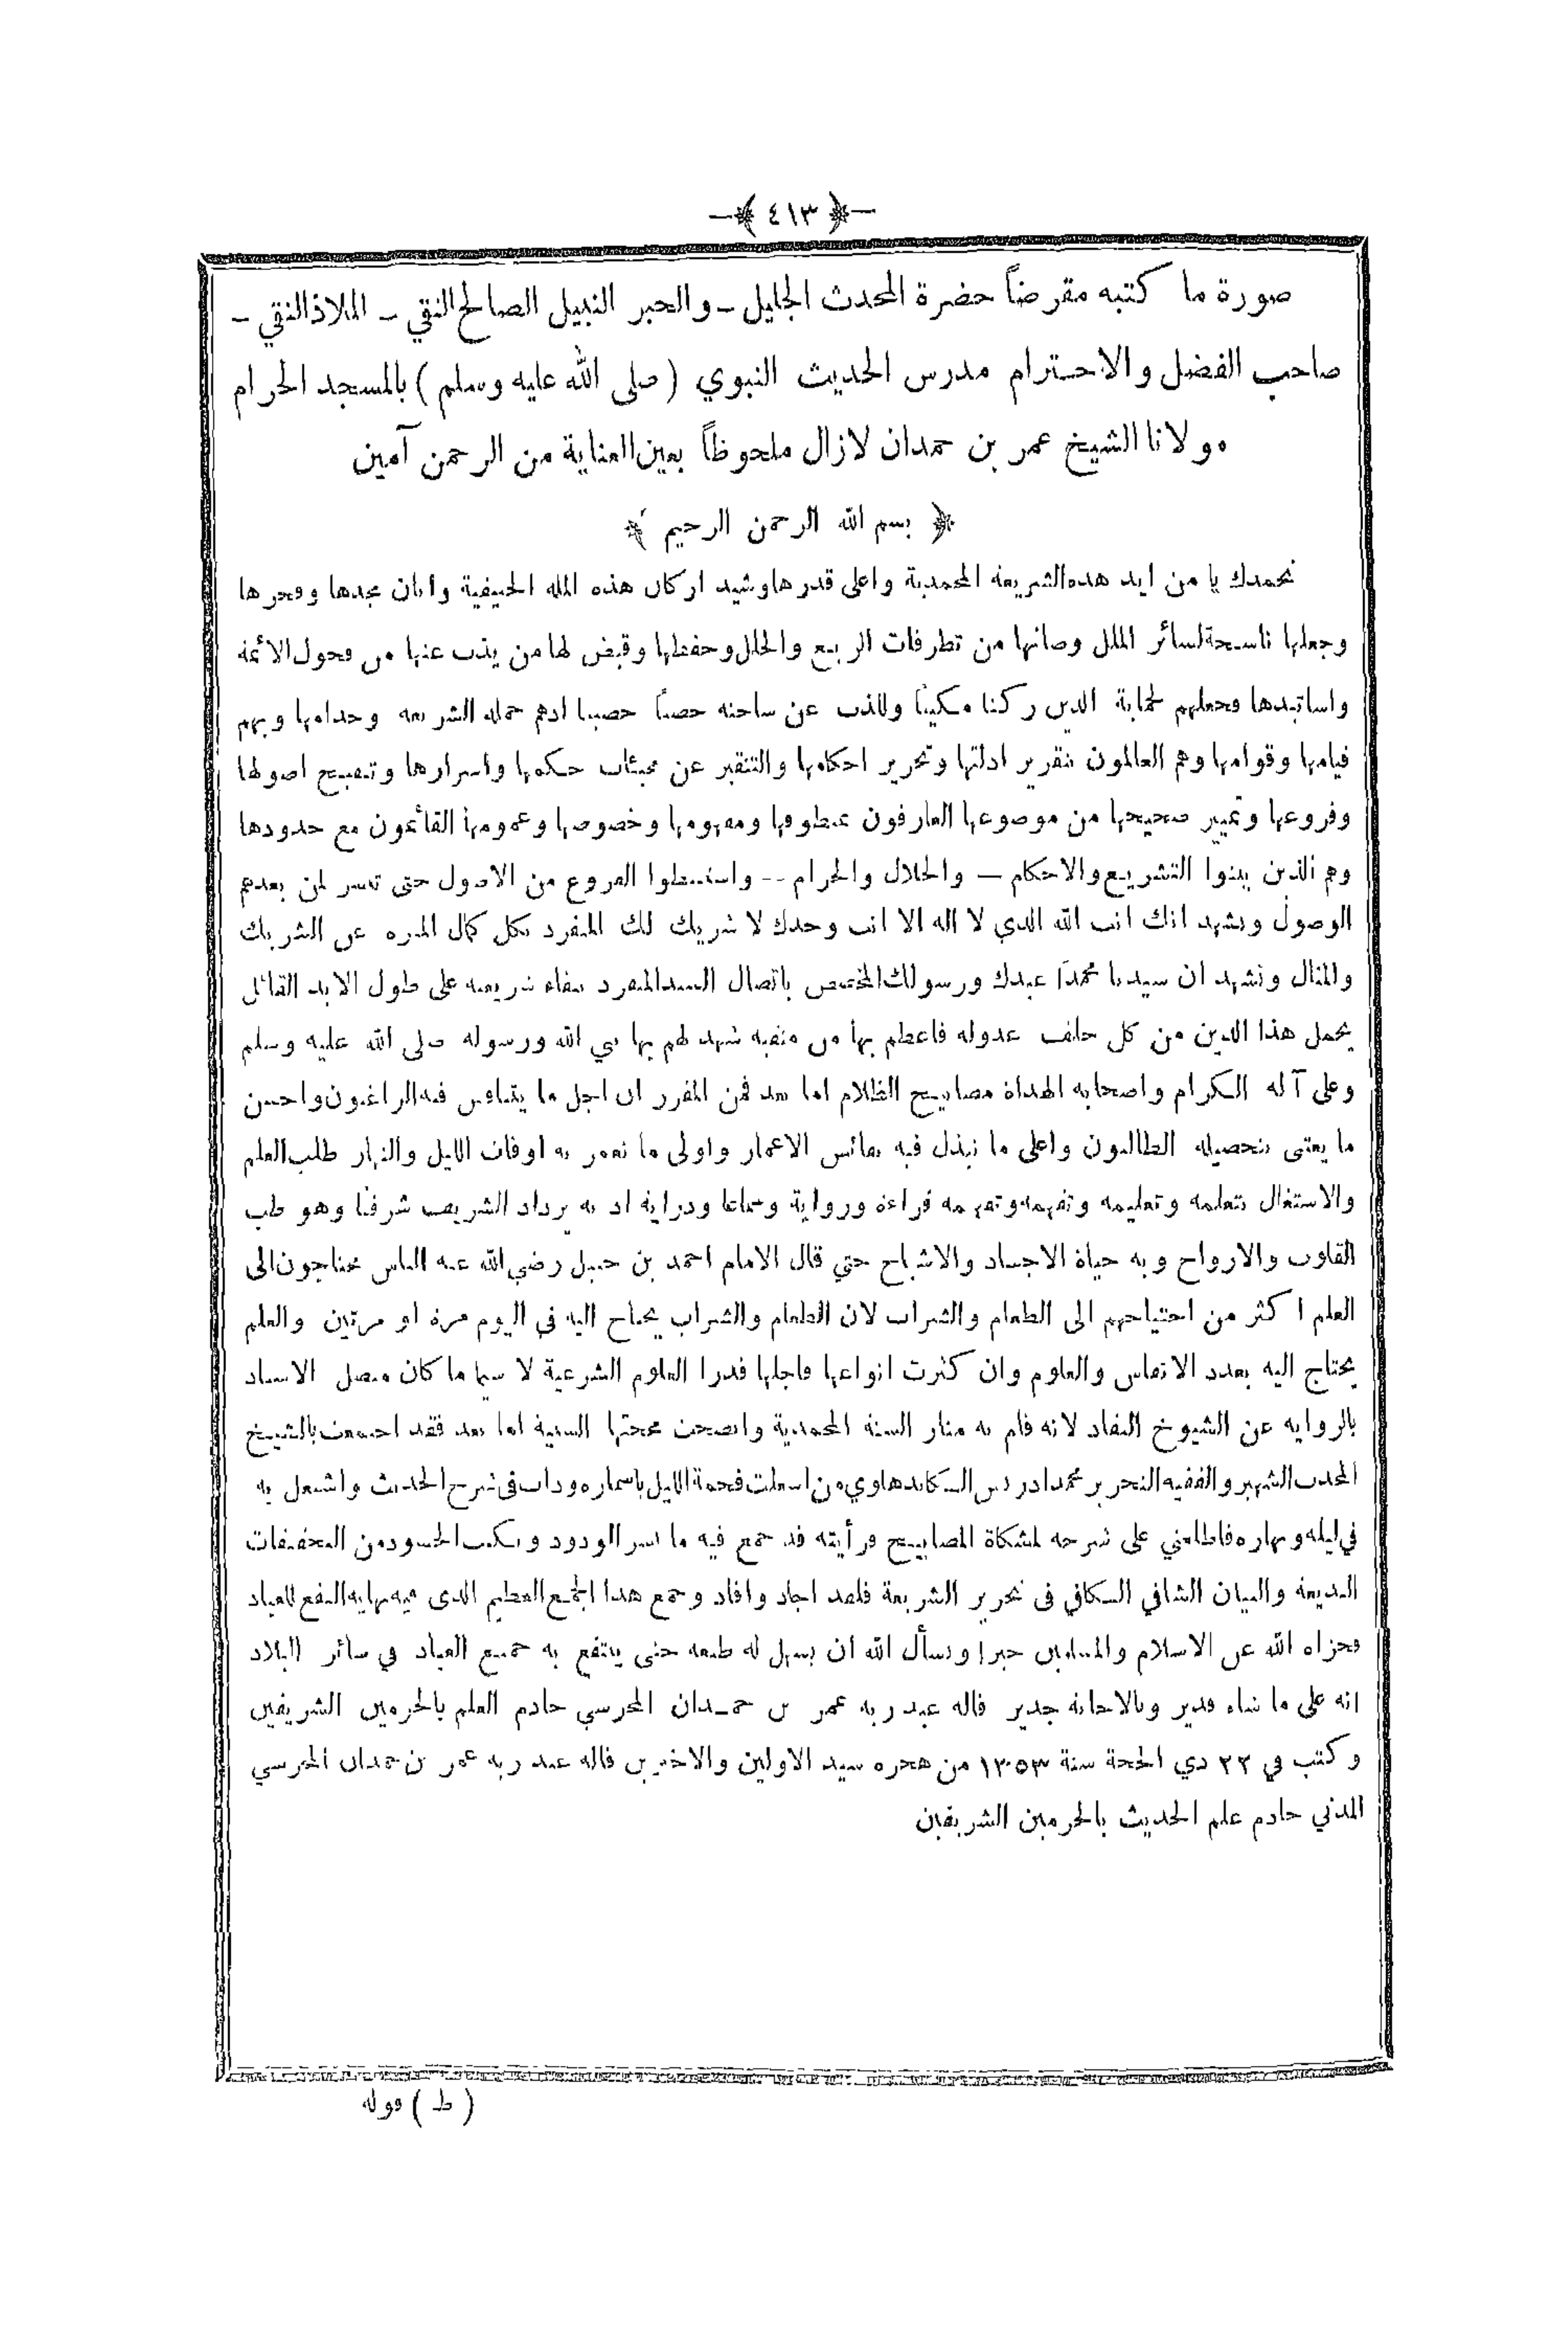 ﴿ ٤١٣ ﴾
صورة ما كتبه مقرضاً حضرة المحدث الجليل - والحبر النبيل الصالح النقي - الملاذ النقي -
صاحب الفضل والاحترام مدرس الحديث النبوي (صلى الله عليه وسلم) بالمسجد الحرام
مولانا الشيخ عمر بن حمدان لازال ملحوظاً بعين العناية من الرحمن آمين
﴿ بسم الله الرحمن الرحيم ﴾
نحمدك يا من ايد هذه الشريعة المحمدية واعلى قدرها وشيد اركان هذه الملة الحنيفية وابان مجدها وفخرها
وجعلها ناسخة لسائر الملل وصانها من تطرفات الزيغ والخلل وحفظها وقيض لها من يذب عنها من فحول الائمة
واساتيذها فجعلهم لحماية الدين ركنا مكينا وللذب عن ساحته حصنا حصينا اذهم حملة الشريعة وخدامها وبهم
قيامها وقوامها وهم العالمون بتقرير ادلتها وتحرير احكامها والتنقير عن مخبئات حكمها واسرارها وتنقيح اصولها
وفروعها وتمييز صحيحها من موضوعها العارفون بمنطوقها ومفهومها وخصوصها وعمومها القائمون مع حدودها
وهم الذين بينوا التشريع والاحكام — والحلال والحرام -- واستنبطوا الفروع من الاصول حتى تيسر لمن بعدهم
الوصول ونشهد انك انت الله الذي لا اله الا انت وحدك لا شريك لك المنفرد بكل كمال المنزه عن الشريك
والمثال ونشهد ان سيدنا محمدا عبدك ورسولك المختص باتصال السند المنفرد ببقاء شريعته على طول الابد القائل
يحمل هذا الدين من كل خلف عدوله فاعظم بها من منقبة شهد لهم بها نبي الله ورسوله صلى الله عليه وسلم
وعلى آله الكرام واصحابه الهداة مصابيح الظلام اما بعد فمن المقرر ان اجل ما يتنافس فيه الراغبون واحسن
ما يعتني بتحصيله الطالبون واعلى ما تبذل فيه نفائس الاعمار واولى ما تعمر به اوقات الليل والنهار طلب العلم
والاشتغال بتعلمه وتعليمه وتفهمه وتفهيمه قراءة ورواية وسماعا ودراية اذ به يزداد الشريف شرفا وهو طب
القلوب والارواح وبه حياة الاجساد والاشباح حتي قال الامام احمد بن حنبل رضي الله عنه الناس محتاجون الى
العلم اكثر من احتياجهم الى الطعام والشراب لان الطعام والشراب يحتاج اليه في اليوم مرة او مرتين والعلم
يحتاج اليه بعدد الانفاس والعلوم وان كثرت انواعها فاجلها قدرا العلوم الشرعية لا سيما ما كان متصل الاسناد
بالرواية عن الشيوخ النقاد لانه قام به منار السنة المحمدية واتضحت محجتها السنية اما بعد فقد اجتمعت بالشيخ
المحدث الشهير والفقيه النحرير محمد ادريس الكاندهلوي من اسملت فحمة الليل باسماره وداب في شرح الحديث واشتغل به
في ليله ونهاره فاطلعني على شرحه لمشكاة المصابيح فرأيته قد جمع فيه ما يسر الودود ويكبت الحسود من التحقيقات
البديعة والبيان الشافي الكافي في تحرير الشريعة فلقد اجاد وافاد وجمع هذا الجمع العظيم الذى فيه نهاية النفع للعباد
فجزاه الله عن الاسلام والمسلمين خيرا ونسأل الله ان يسهل له طبعه حتى ينتفع به جميع العباد في سائر البلاد
انه على ما يشاء قدير وبالاجابة جدير قاله عبد ربه عمر بن حمدان المحرسي خادم العلم بالحرمين الشريفين
وكتب في ٢٣ ذي الحجة سنة ١٣٥٣ من هجرة سيد الاولين والاخرين قاله عبد ربه عمر بن حمدان المحرسي
المدني خادم علم الحديث بالحرمين الشريفين
( ط ) قوله